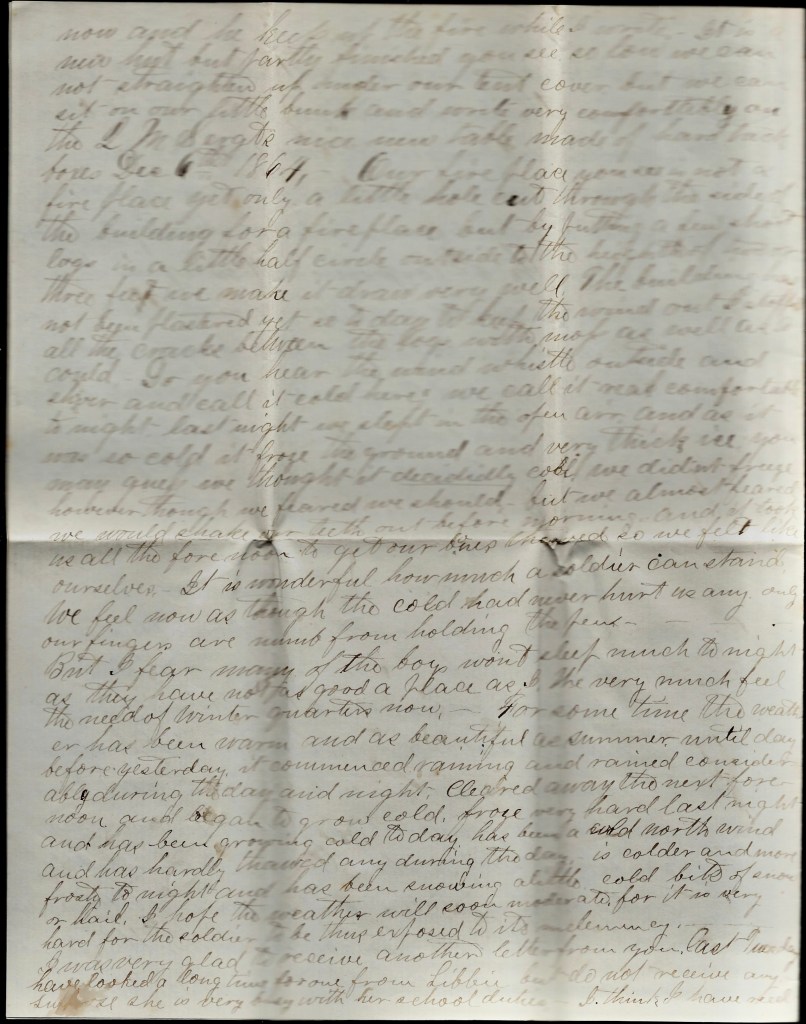 now and he keeps up the fire while I write - It is a
new hut but partly finished you see so low we can
not straighten up under our tent cover but we can
sit on our little bunk and write very comfortably on
the 2 M nice new table made of hard tack
boxes Dec 6th 1864, - Our fire place you see is not a
fire place yet only a little hole cut through the side of
the building for a fireplace but by putting a few short
logs in a little half circle outside to the height of two or
three feet we make it draw very well The building has
not been plastered yet so to day to keep the wind out I
all the cracks between the logs with moss as well as I
could - So you hear the wind whistle outside and
shiver and call it cold here we call it real comfortable
to night last night we slept in the open air, and as it
was so cold it froze the ground and very thick ice you
may guess we thought it decidedly cold, we didnt freeze
however though we feared we should - but we almost feared
we would shake our teeth out before morning and it took
us all the fore noon to get our so we felt like
ourselves. - It is wonderful how much a soldier can stand.
We feel now as though the cold had never hurt us any only
our fingers are numb from holding the pens -
But I fear many of the boys wont sleep much to night
as they have not as good a place as I. We very much feel
the need of winter quarters now. - For some time the weath
er has been warm and as beautiful as summer until day
before yesterday, it commenced raining and rained consider
ably during the day and night. Cleared away the next fore
noon and began to grow cold. froze very hard last night
and has been growing cold to day, has been a cold north wind
and has hardly thawed any during the day - is colder and more
frosty to night and has been snowing a little, cold bits of snow
or hail. I hope the weather will soon moderate, for it is very
hard for the soldier to be thus exposed to its inclemency. -
I was very glad to receive another letter from you. Last I
have looked a long time for one from Libbie do not receive any I
suppose she is very busy with her school duties I think I have